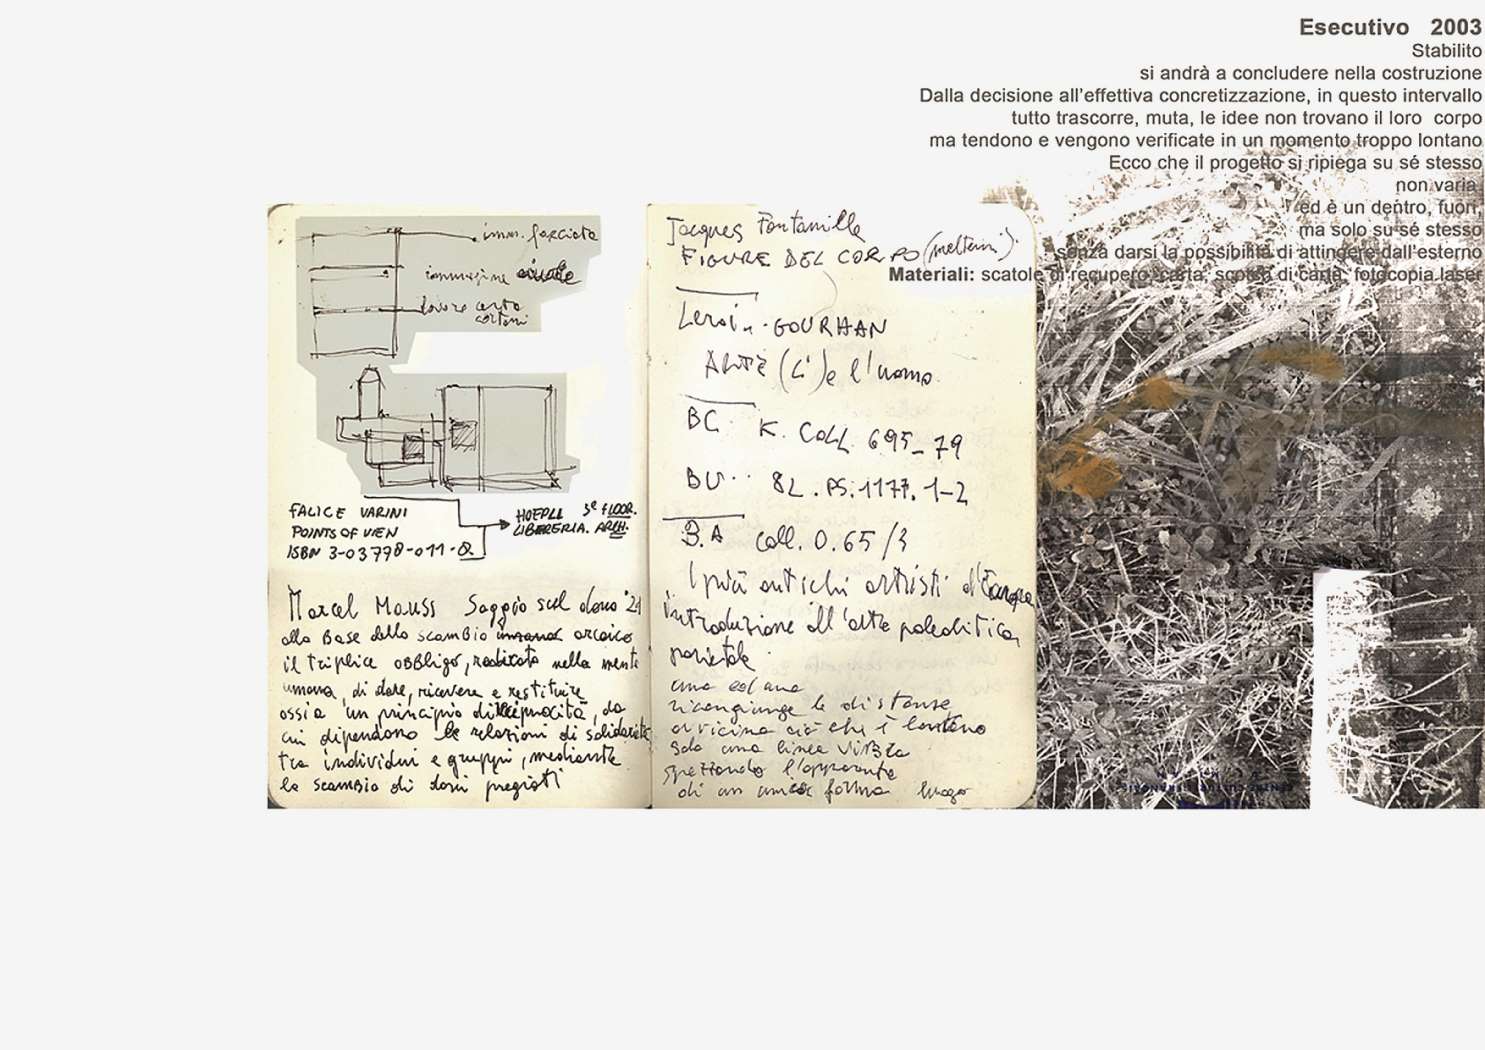 Esecutivo 2003
Stabilito
si andrà a concludere nella costruzione
Dalla decisione all'effettiva concretizzazione, in questo intervallo
tutto trascorre, muta, le idee non trovano il loro corpo
ma tendono e vengono verificate in un momento troppo lontano
Ecco che il progetto si ripiega su sé stesso
non varia,
ed è un dentro, fuori,
ma solo su sé stesso
senza darsi la possibilità di attingere dall'esterno
Materiali: scatole di recupero, carta, scotch di carta, fotocopia laser
imm. facciata
immagine
lavoro carta
cartoni
FALICE VARINI
POINTS OF VIEN
ISBN 3-03778-011-8
HOEPLL 3° FLOOR.
LIBERERIA. ARCH.
Marcel Mauss Saggio sul dono '24
alla Base dello scambio arcaico
il triplice obbligo, radicato nella mente
umana, di dare, ricevere e restituire
ossia un principio di reciprocità, da
cui dipendono le relazioni di solidarietà
tra individui e gruppi, mediante
lo scambio di doni pregiati
Jacques Fontanille
FIGURE DEL CORPO (meltemi).
Leroi-GOURHAN
e l'uomo
BC. K. COLL. 695_79
BU.. 8L.PS.1177.1-2
B.A coll. 0.65/3
I più antichi artisti d'Europa
introduzione all'arte paleolitica
parietale
una
ricongiunge le distanze
avvicina ciò che è lontano
solo una linea vista
spezzando l'apparente
di una forma luogo